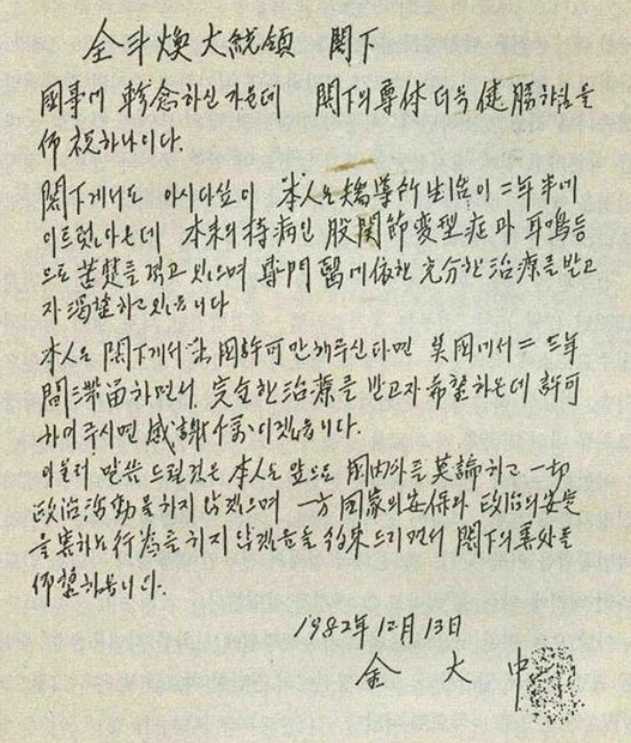 全斗煥大統領 閣下
國事에 軫念하신 가운데 閣下의 尊体 더욱 健勝하심을
仰祝하나이다.
閣下께서도 아시다싶이 本人은 矯導所生活이 二年半에
이르렀아온데 本來의 持病인 股關節変型症과 耳鳴等
으로 苦楚를 격고 있으며 專門醫에 依한 充分한 治療를 받고
자 渴望하고 있읍니다
本人은 閣下께서 出國許可만 해주신다면 美國에서 二 三年
間 滯留하면서 完全한 治療를 받고자 希望하온데 許可
하여 주시면 感謝千萬이겠읍니다.
아울러 말씀 드릴것은 本人은 앞으로 國内外를 莫論하고 一切
政治活動을 하지 않겠으며 一方 國家의 安保와 政治의 安定
을 害하는 行為를 하지 않겠음을 約束드리면서 閣下의 善処를
仰望하옵니다.
1982年 12月 13日
金 大 中